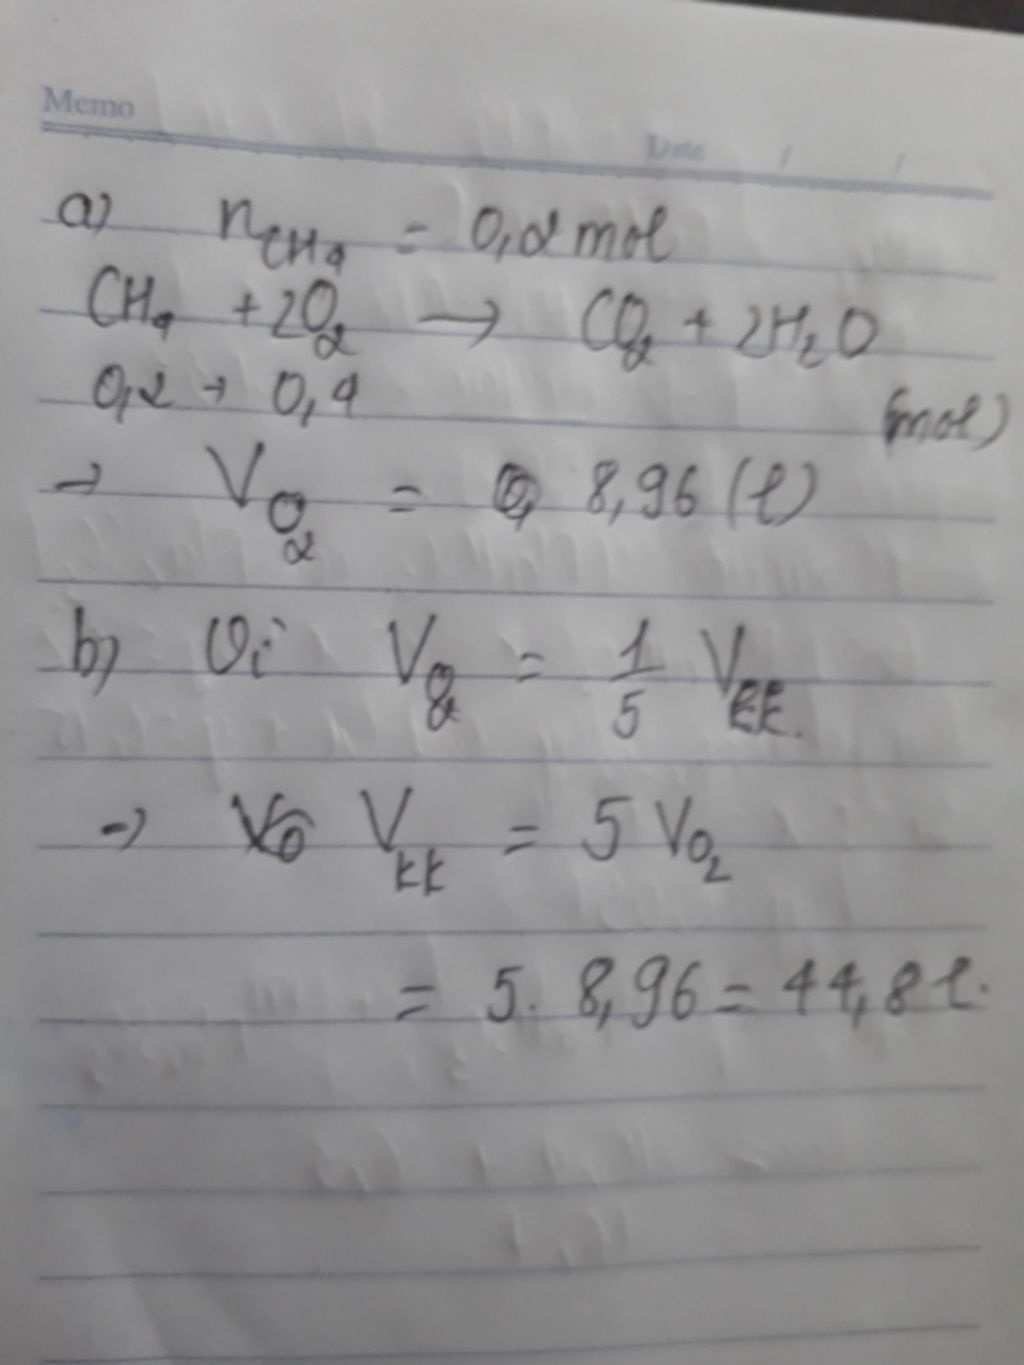 Memo
Date / /
a) nCH4 = 0,2 mol
CH4 + 2O2 → CO2 + 2H2O
0,2 → 0,4 (mol)
→ VO2 = 8,96 (l)
b) Vì VO2 = 1/5 Vkk.
→ Vkk = 5 VO2
= 5. 8,96 = 44,8 l.